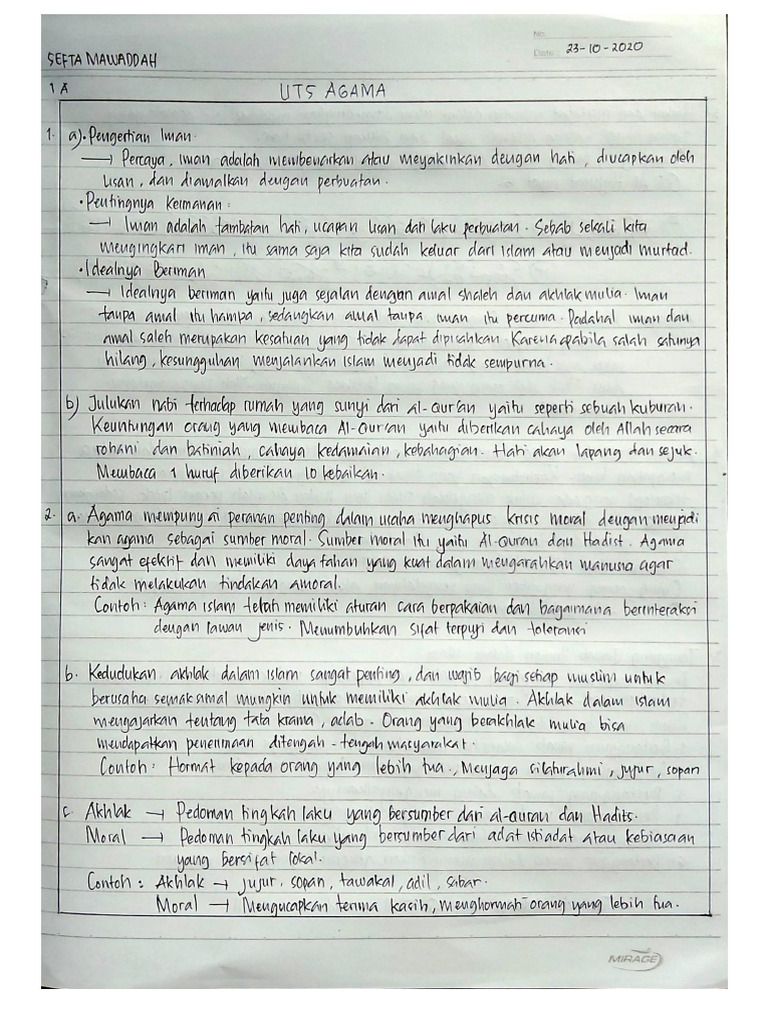 No.
Date 23-10-2020
SEFTA MAWADDAH
1 A
UTS AGAMA
1. a). • Pengertian Iman.
→ Percaya, iman adalah membenarkan atau meyakinkan dengan hati, diucapkan oleh
lisan, dan diamalkan dengan perbuatan.
• Pentingnya Keimanan :
→ Iman adalah tambatan hati, ucapan lisan dan laku perbuatan. Sebab sekali kita
mengingkari iman, itu sama saja kita sudah keluar dari islam atau menjadi murtad.
• Idealnya Beriman
→ Idealnya beriman yaitu juga sejalan dengan amal shaleh dan akhlak mulia. Iman
tanpa amal itu hampa, sedangkan amal tanpa iman itu percuma. Padahal iman dan
amal saleh merupakan kesatuan yang tidak dapat dipisahkan. Karena apabila salah satunya
hilang, kesungguhan menjalankan islam menjadi tidak sempurna.
b) Julukan nabi terhadap rumah yang sunyi dari al-Qur'an yaitu seperti sebuah kuburan.
Keuntungan orang yang membaca Al-Qur'an yaitu diberikan cahaya oleh Allah secara
rohani dan batiniah, cahaya kedamaian, kebahagian. Hati akan lapang dan sejuk.
Membaca 1 huruf diberikan 10 kebaikan.
2. a. Agama mempunyai peranan penting dalam usaha menghapus krisis moral dengan menjadi
kan agama sebagai sumber moral. Sumber moral itu yaitu Al-Quran dan Hadist. Agama
sangat efektif dan memiliki daya tahan yang kuat dalam mengarahkan manusia agar
tidak melakukan tindakan amoral.
Contoh : Agama islam telah memiliki aturan cara berpakaian dan bagaimana berinteraksi
dengan lawan jenis. Menumbuhkan sifat terpuji dan toleransi
b. Kedudukan akhlak dalam islam sangat penting, dan wajib bagi setiap muslim untuk
berusaha semaksimal mungkin untuk memiliki akhlak mulia. Akhlak dalam islam
mengajarkan tentang tata krama, adab. Orang yang berakhlak mulia bisa
mendapatkan penerimaan ditengah-tengah masyarakat.
Contoh : Hormat kepada orang yang lebih tua., Menjaga silaturahmi, jujur, sopan
c. Akhlak → Pedoman tingkah laku yang bersumber dari al-quran dan Hadits.
Moral → Pedoman tingkah laku yang bersumber dari adat istiadat atau kebiasaan
yang bersifat lokal.
Contoh : Akhlak → jujur, sopan, tawakal, adil, sabar.
Moral → Mengucapkan terima kasih, menghormati orang yang lebih tua.
MIRAGE